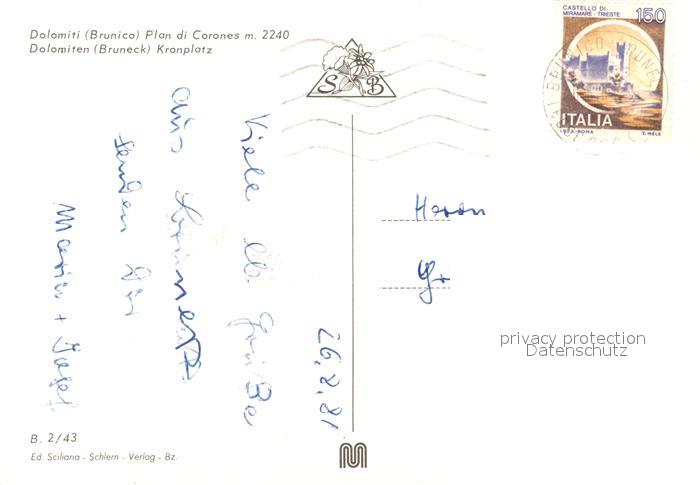 Dolomiti (Brunico) Plan di Corones m. 2240
Dolomiten (Bruneck) Kronplatz
S B
CASTELLO DI
MIRAMARE - TRIESTE 150
ITALIA
I.P.Z.S. ROMA T. MELE
BRUNICO
26.2.81
Viele lb. Grüße
aus
senden Dir
Maria + Josef
Herrn
Gr
privacy protection
Datenschutz
B. 2/43
Ed. Sciliana - Schlern - Verlag - Bz.